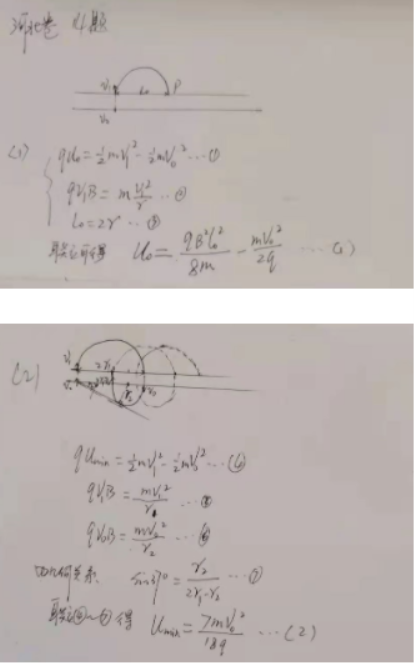 河北卷 14题
V₁ L₀ P
V₀
(1) qU₀=½mV₁²-½mV₀² …①
qV₁B=m V₁²/r …②
L₀=2r …③
联立可得 U₀=qB²L₀²/8m - mV₀²/2q …(1)
(2)
qUmin=½mV₁²-½mV₀² …④
qV₁B=mV₁²/r₁ …⑤
qV₀B=mV₀²/r₂ …⑥
由几何关系 sin37°=r₂/(2r₁-r₂) …⑦
联立④~⑦得 Umin=7mV₀²/18q …(2)